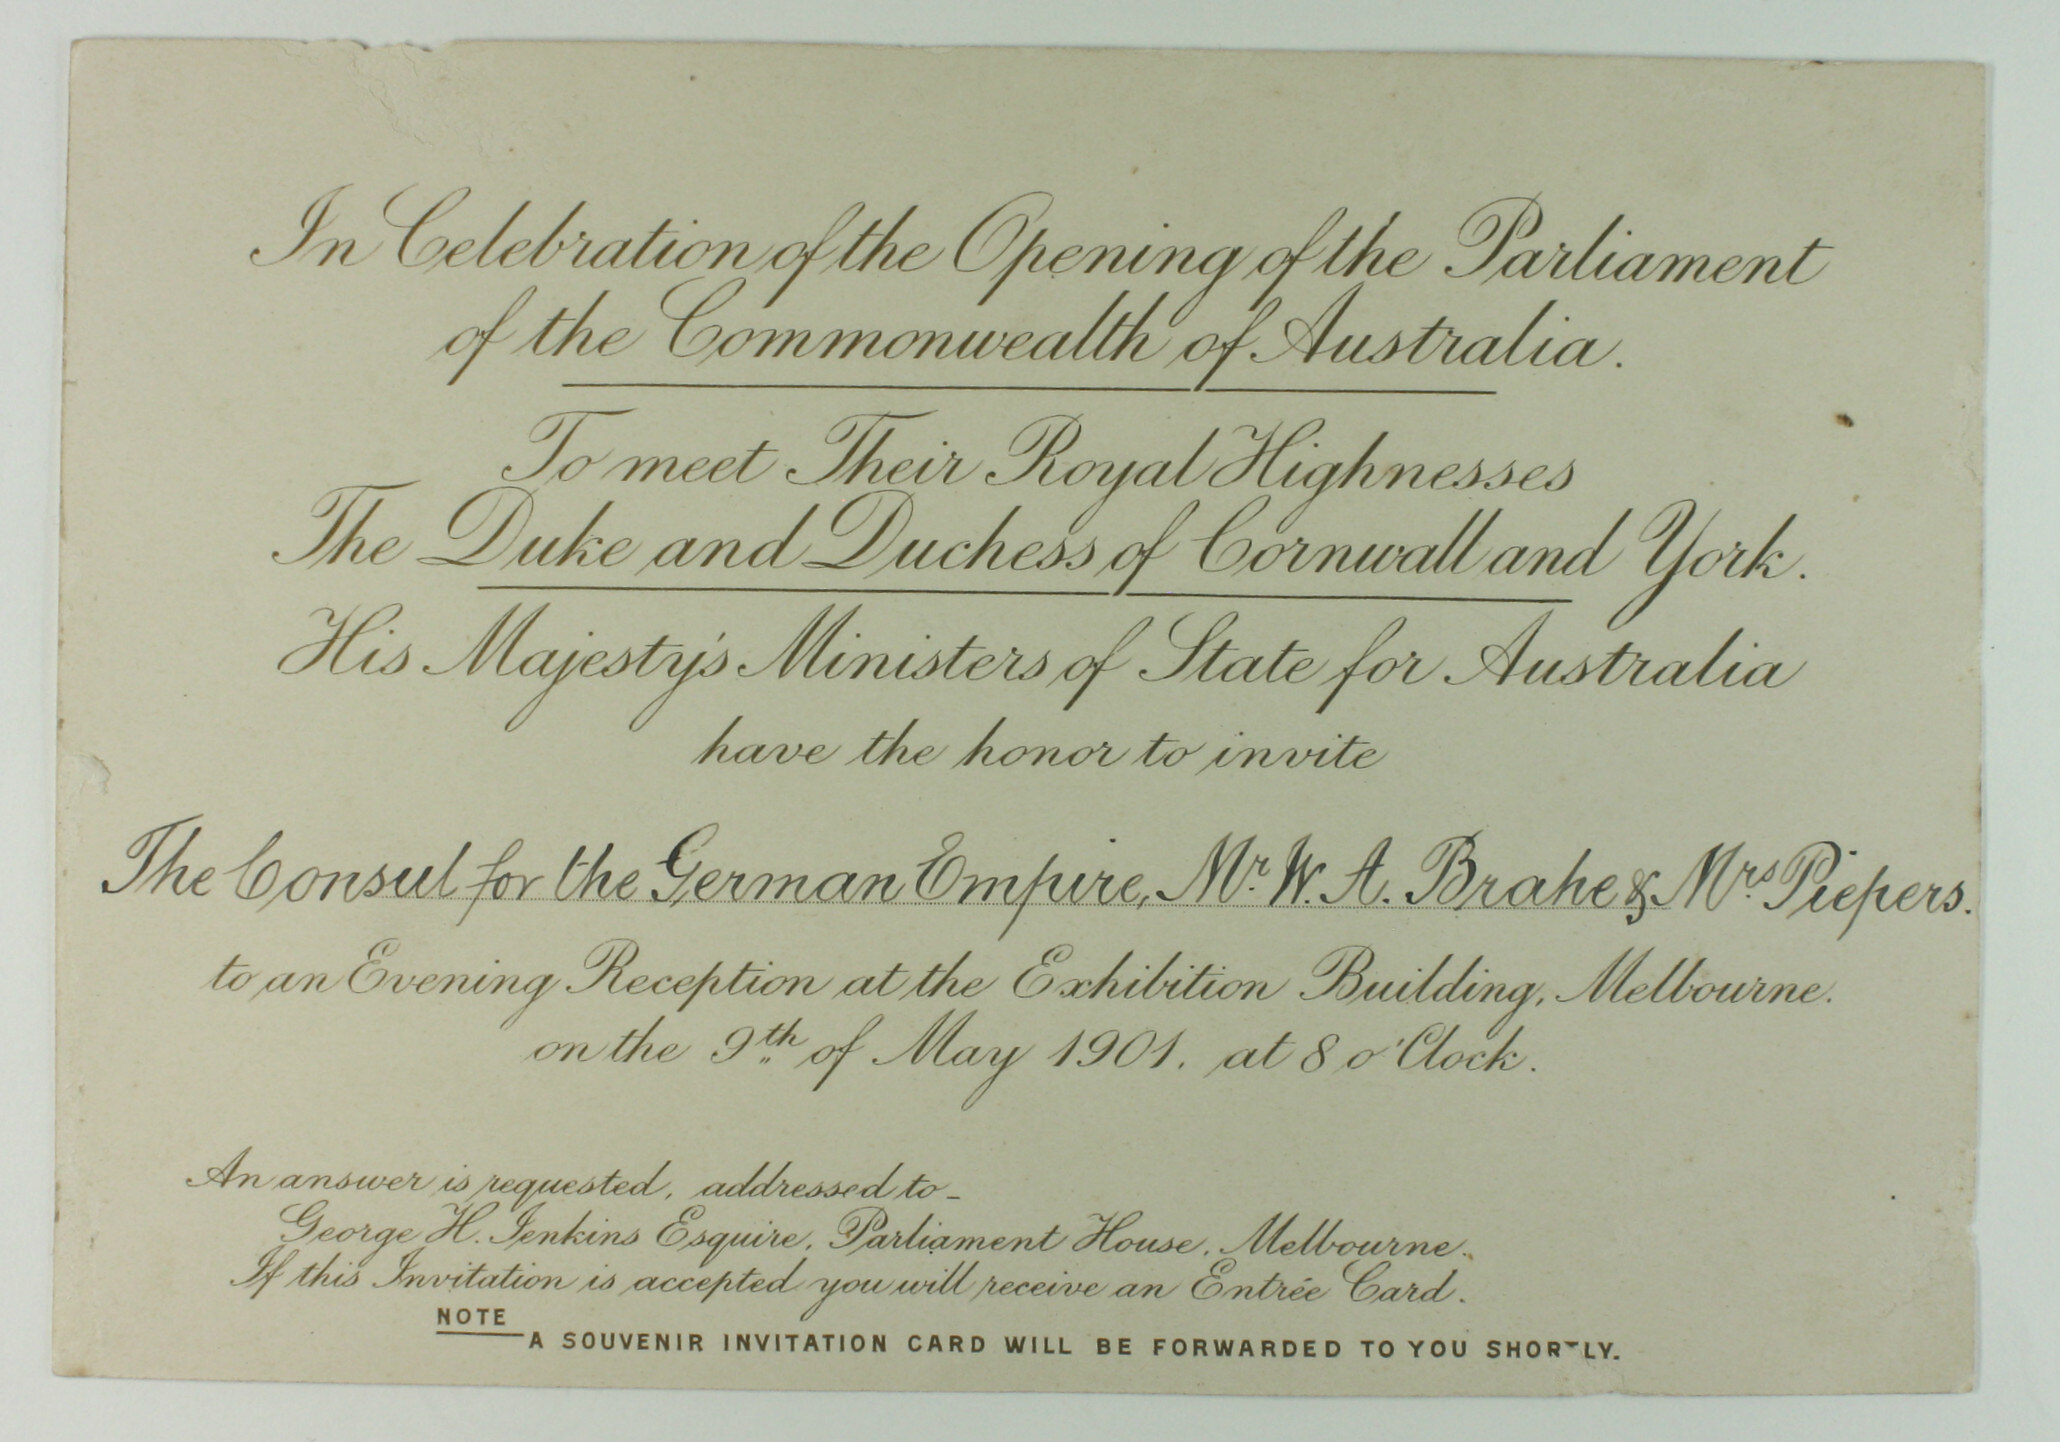 In Celebration of the Opening of the Parliament
of the Commonwealth of Australia.
To meet Their Royal Highnesses
The Duke and Duchess of Cornwall and York.
His Majesty's Ministers of State for Australia
have the honor to invite
The Consul for the German Empire, Mr. W. A. Brahe & Mrs Piepers.
to an Evening Reception at the Exhibition Building, Melbourne.
on the 9th of May 1901. at 8 o'Clock.
An answer is requested, addressed to-
George H. Jenkins Esquire, Parliament House, Melbourne.
If this Invitation is accepted you will receive an Entrée Card.
NOTE
A SOUVENIR INVITATION CARD WILL BE FORWARDED TO YOU SHORTLY.